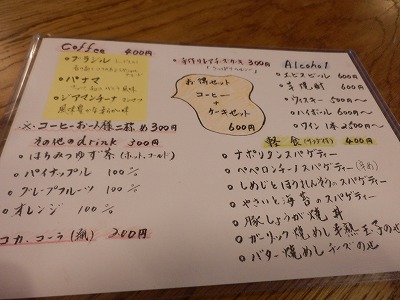 Coffee 400円
ブラジル
パナマ
※コーヒーお一人様二杯め300円
その他のdrink 300円
はちみつゆず茶(ホット、コールド)
パイナップル 100%
グレープフルーツ 100%
オレンジ 100%
コカ、コーラ(瓶) 200円
手作りレアチーズケーキ 300円
お得セット
コーヒー
+
ケーキセット
600円
Alcohol
エビスビール 600円
芋焼酎 600円
ウィスキー 500円〜
ハイボール 600円〜
ワイン1本 2500円〜
軽食 400円
ナポリタンスパゲティー
ペペロンチーノスパゲティー
しめじとほうれん草のスパゲティー
やさいと海苔のスパゲティー
豚しょうが焼丼
ガーリック焼めし半熟玉子のせ
バター焼めしチーズのせ